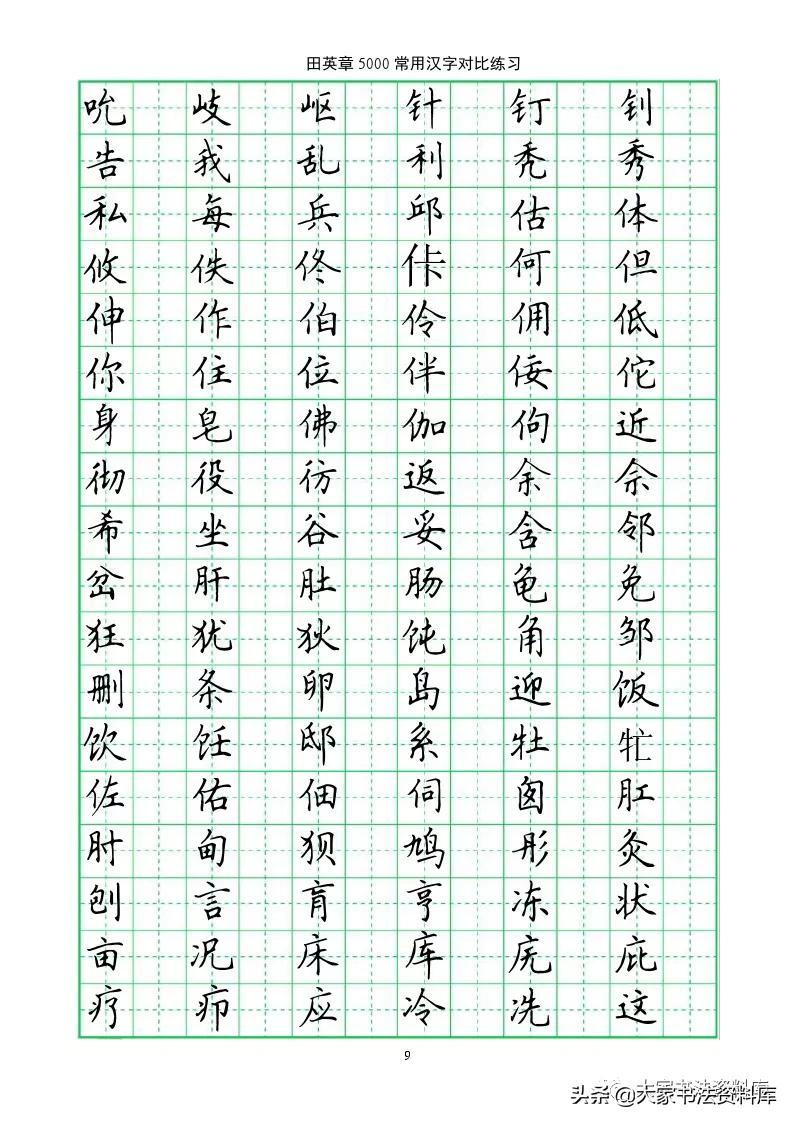 田英章5000常用汉字对比练习
吮 岐 岖 针 钉 钊
告 我 乱 利 秃 秀
私 每 兵 邱 估 体
攸 佚 佟 佧 何 但
伸 作 伯 伶 佣 低
你 住 位 伴 佞 佗
身 皂 佛 伽 佝 近
彻 役 彷 返 余 佘
希 坐 谷 妥 含 邻
岔 肝 肚 肠 龟 免
狂 犹 狄 饨 角 邹
删 条 卵 岛 迎 饭
饮 饪 邸 系 牡 牤
佐 佑 佃 伺 囱 肛
肘 甸 狈 鸠 彤 灸
刨 言 育 亨 冻 状
亩 况 床 库 庑 庇
疗 疖 应 冷 冼 这
9
头条 @大家书法资料库